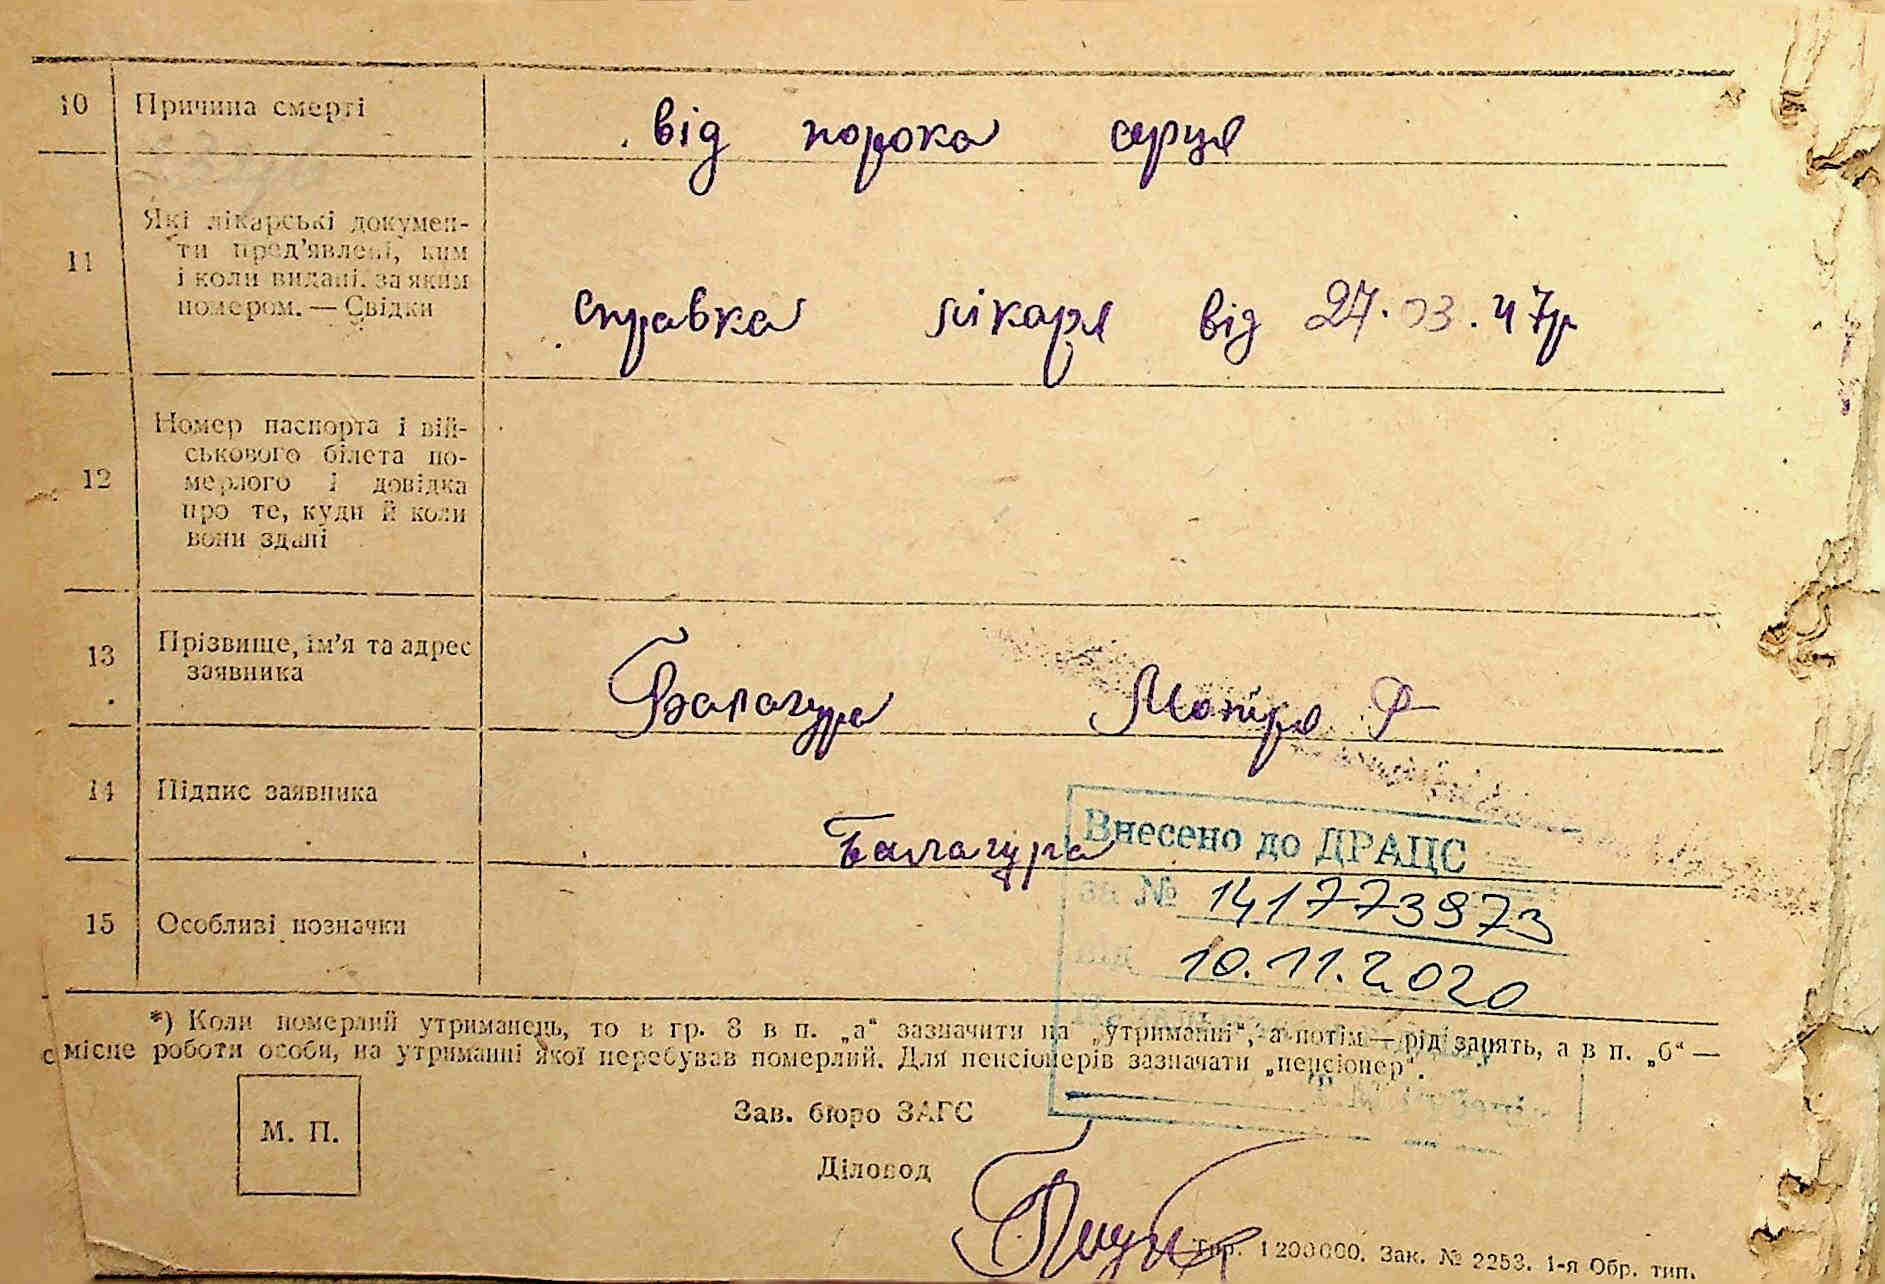 10 Причина смерті від порока серця
11 Які лікарські докумен-
ти пред'явлені, ким
і коли видані, за яким
номером. — Свідки
справка лікаря від 27.03.47р
12 Номер паспорта і вій-
ськового білета по-
мерлого і довідка
про те, куди й коли
вони здані
13 Прізвище, ім'я та адрес
заявника
Балагура Мотря Ф
14 Підпис заявника
Балагура
Внесено до ДРАЦС
за № 141773973
від 10.11.2020
15 Особливі позначки
*) Коли померлий утриманець, то в гр. 8 в п. „а“ зазначити на „утриманні“, а потім — рід занять, а в п. „б“ —
місце роботи особи, на утриманні якої перебував померлий. Для пенсіонерів зазначати „пенсіонер“.
М. П.
Зав. бюро ЗАГС
Діловод
Тир. 1200000. Зак. № 2253. 1-я Обр. тип.